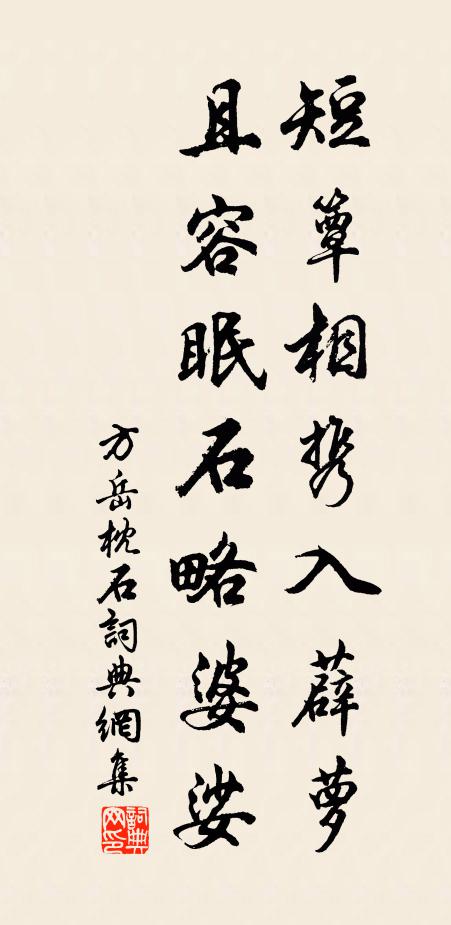 短簟相携入薜萝
且容眠石略婆娑
方岳枕石詞典網集
詞典网印